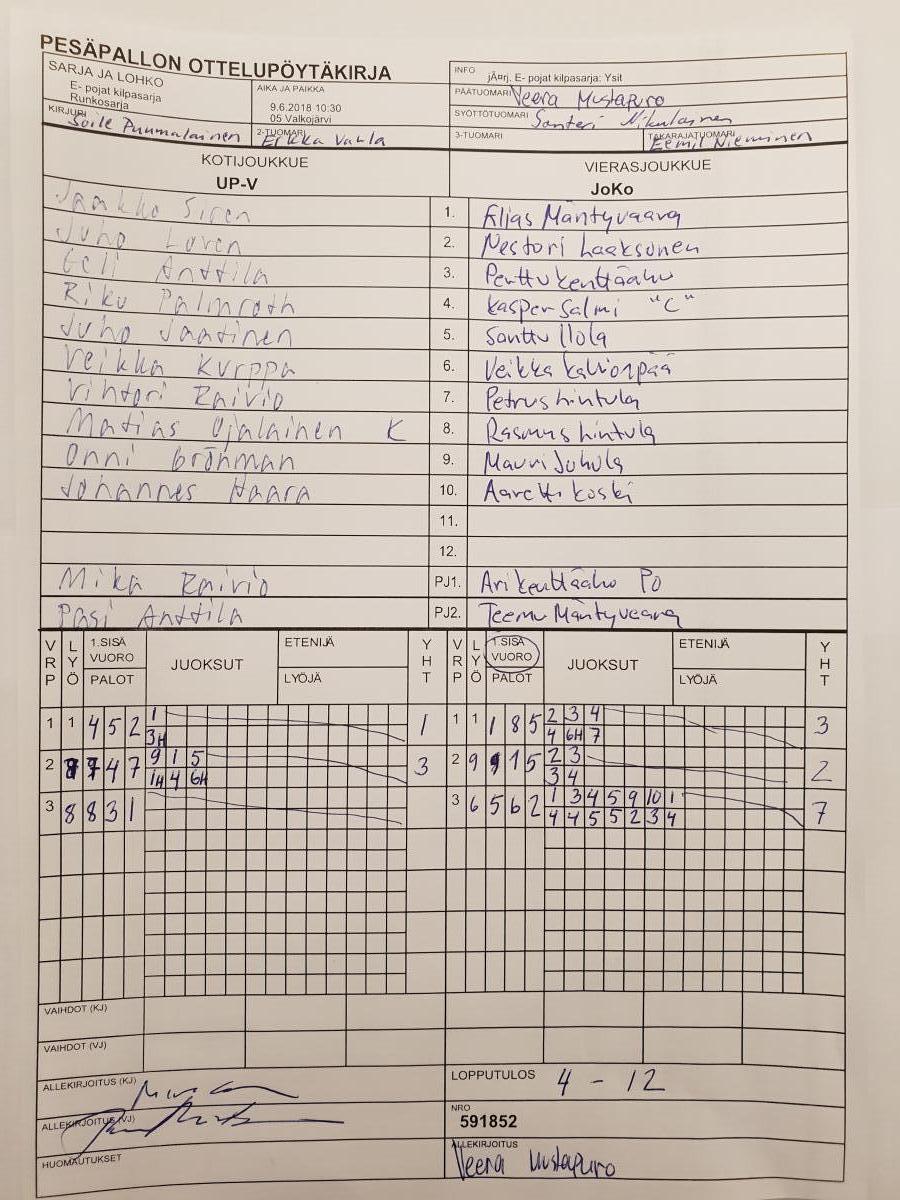 PESÄPALLON OTTELUPÖYTÄKIRJA
SARJA JA LOHKO
E- pojat kilpasarja
Runkosarja
AIKA JA PAIKKA
9.6.2018 10:30
05 Valkojärvi
INFO
jÃ¤rj. E- pojat kilpasarja: Ysit
PÄÄTUOMARI Veera Mustapuro
SYÖTTÖTUOMARI Santeri Nikulainen
KIRJURI Soile Puumalainen
2-TUOMARI Erkka Vahla
3-TUOMARI
TAKARAJATUOMARI Eemil Nieminen
KOTIJOUKKUE
UP-V
VIERASJOUKKUE
JoKo
Jaakko Siren 1. Elias Mäntyvaara
Juho Loren 2. Nestori Laaksonen
Eeli Anttila 3. Perttu kenttäaho
Riku Palmroth 4. kasper Salmi "C"
Juho Jaatinen 5. Santtu Ilola
Veikka Kurppa 6. Veikka kallionpää
Vihtori Raivio 7. Petrus hintula
Matias Ojalainen K 8. Rasmus hintula
Onni Gröhman 9. Mauri Juhula
Johannes Haara 10. Aaretti koski
11.
12.
Mika Raivio PJ1. Ari kenttäaho Po
Pasi Anttila PJ2. Teemu Mäntyvaara
VRP LYÖ 1.SISÄ VUORO PALOT JUOKSUT ETENIJÄ LYÖJÄ YHT VRP LYÖ 1.SISÄ VUORO PALOT JUOKSUT ETENIJÄ LYÖJÄ YHT
1 1 4 5 2 1 1 1 1 1 8 5 2 3 4 3
3H 4 6H 7
2 4 7 9 1 5 3 2 9 1 5 2 3 2
1H 4 6H 3 4
3 8 8 3 1 3 6 5 6 2 1 3 4 5 9 10 1 7
4 4 5 5 2 3 4
VAIHDOT (KJ)
VAIHDOT (VJ)
ALLEKIRJOITUS (KJ)
LOPPUTULOS 4 - 12
ALLEKIRJOITUS (VJ)
NRO
591852
HUOMAUTUKSET
ALLEKIRJOITUS
Veera Mustapuro